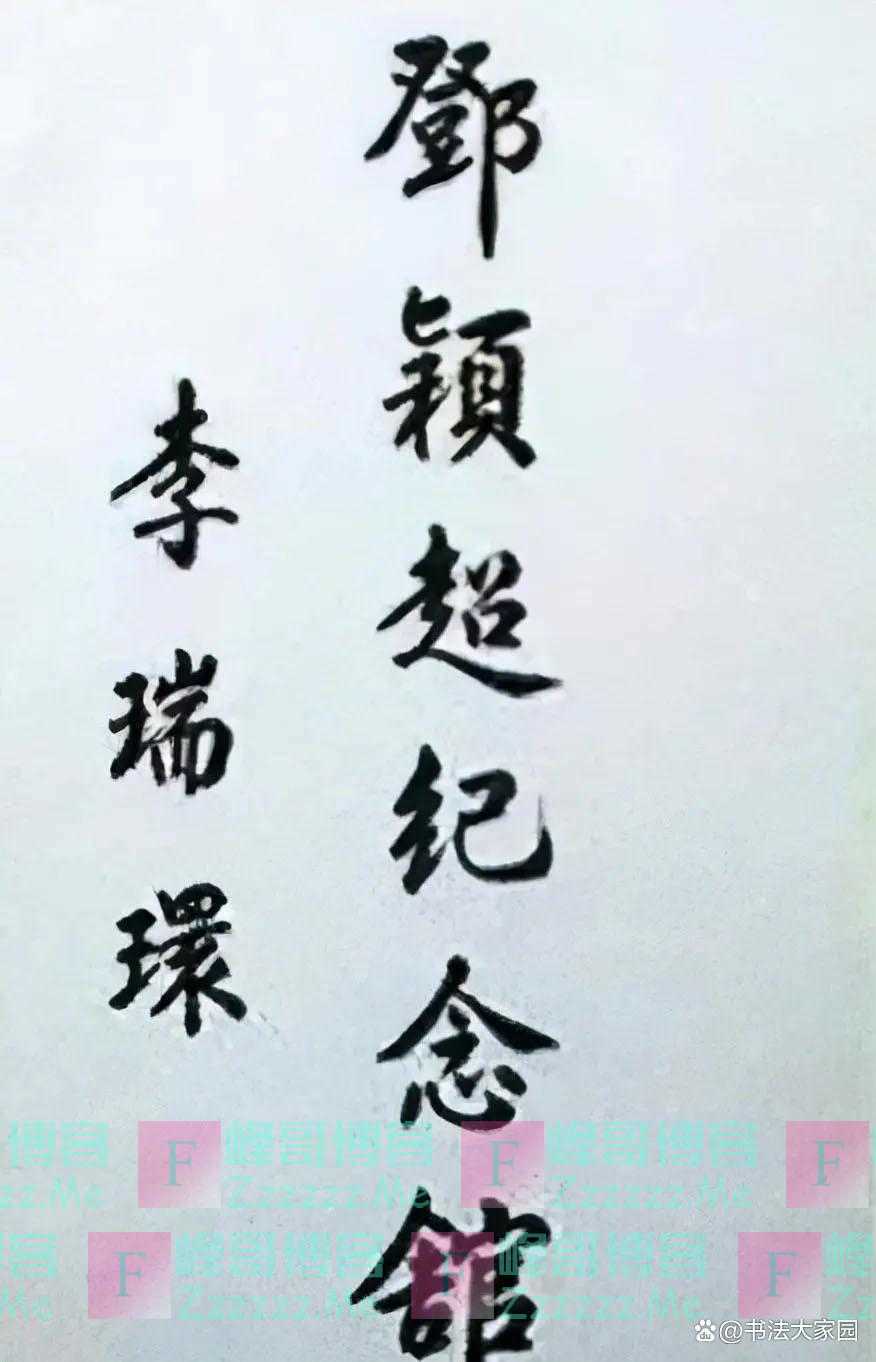 鄧穎超纪念舘
李瑞環
博客 F 峰哥博客 F 峰哥博客 F
zz.Me Zzzzzz.Me Zzzzzz.Me
客 F 峰哥博客 F 峰哥博客 F 峰哥
Me Zzzzzz.Me Zzzzzz.Me Zzzz
@书法大家园